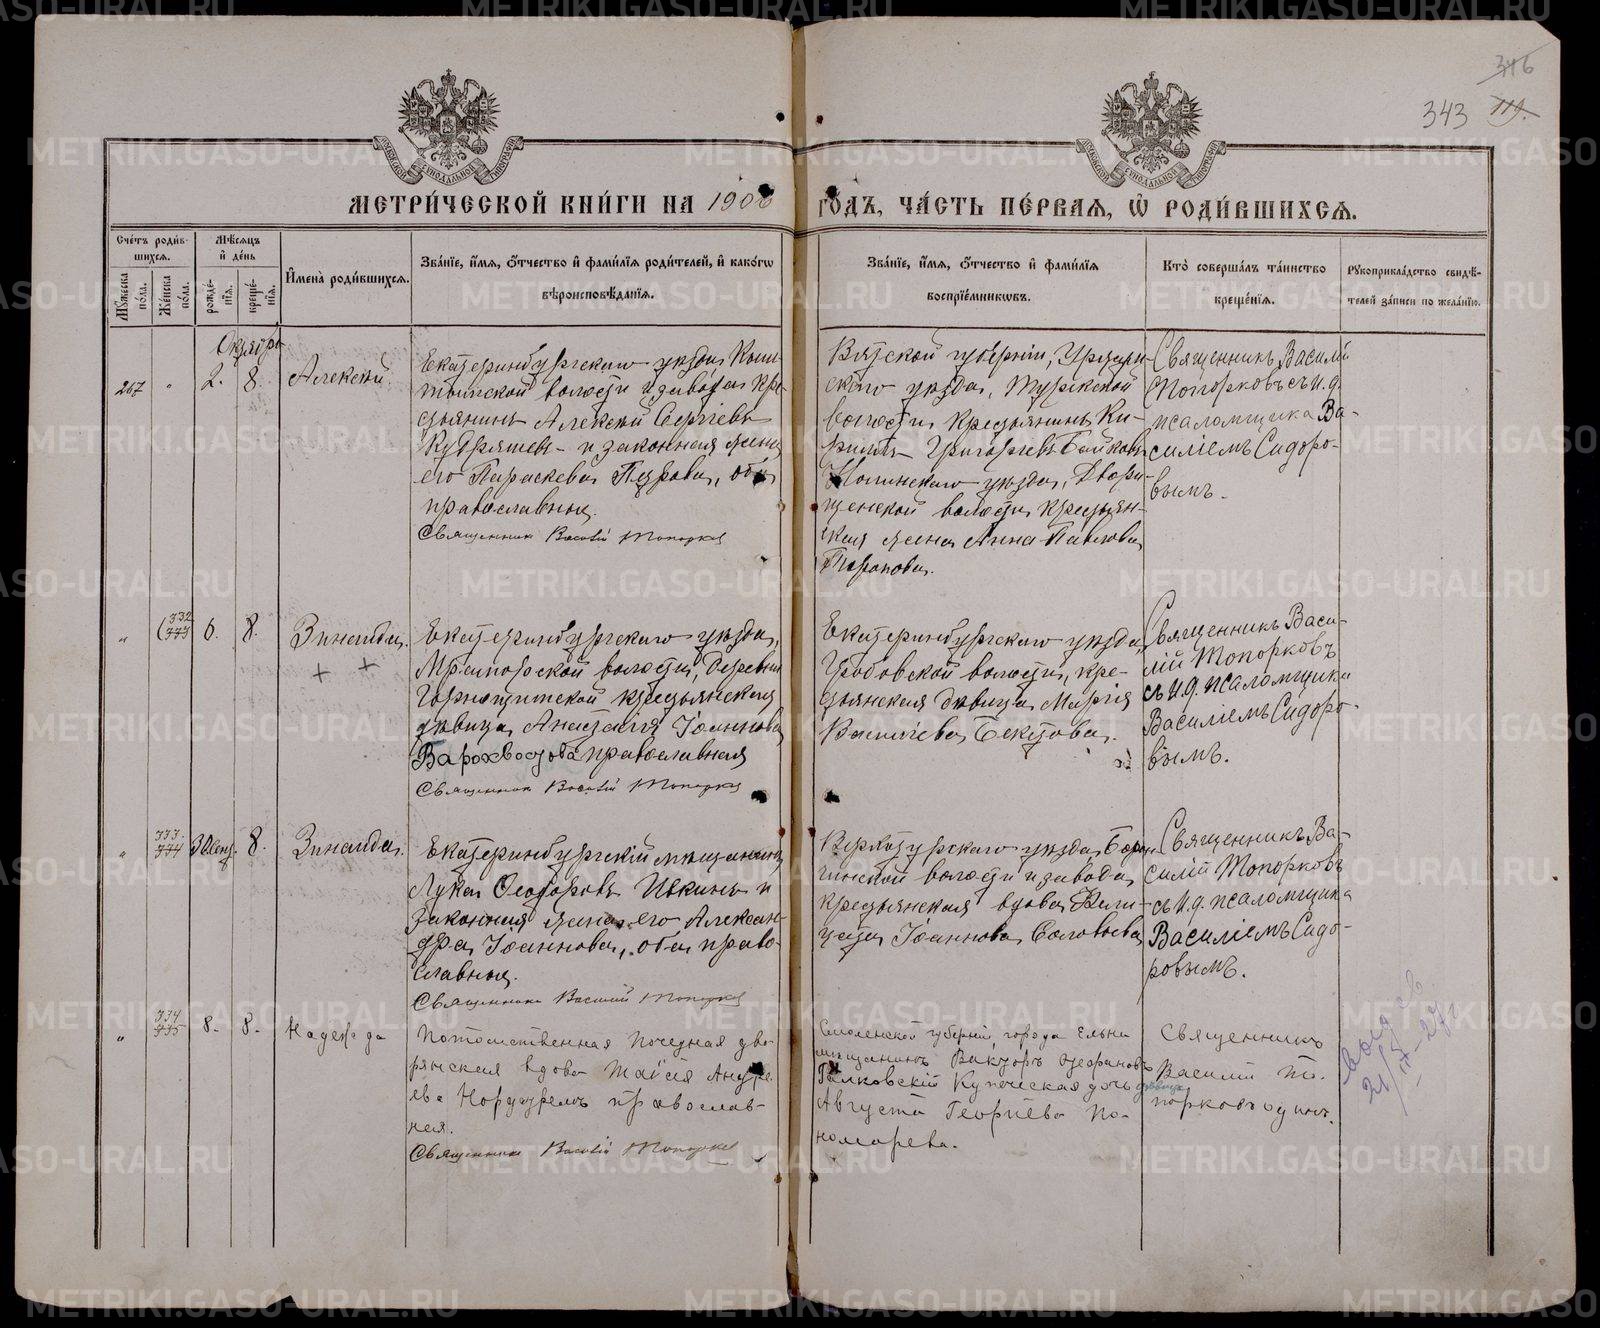 343
МЕТРИ́ЧЕСКОЙ КНИ́ГИ НА 190
ГО́ДЪ, ЧА́СТЬ ПЕ́РВАЯ, Ѡ РОДИ́ВШИХСЯ.
Сче́тъ роди́в-
шихся.
Му́жеска по́ла.
Же́нска по́ла.
Мѣ́сяцъ и́ де́нь
рожде́-
нїя.
креще́-
нїя.
И҆мена̀ роди́вшихся.
Зва́нїе, и́мя, ѻ҆́тчество и҆ фами́лїя роди́телей, и҆ како́гѡ
вѣроисповѣ́данїя.
Зва́нїе, и́мя, ѻ҆́тчество и҆ фами́лїя
воспрїе́мникѡвъ.
Кто̀ соверша́лъ та́инство
креще́нїя.
Рꙋкоприкла́дство свидѣ́-
телей за́писи по жела́нїю.
Октябрь
267
"
2.
8.
Алексѣй.
Екатеринбургскаго уѣзда, Кыш-
тымской волости и завода кре-
стьянинъ Алексѣй Сергіевъ
Кудряшевъ и законная жена
его Параскева Петрова, оба
православные.
Священникъ Василій Топорковъ
Вятской губерніи, Уржум-
скаго уѣзда, Турекской
волости, крестьянинъ Ки-
риллъ Григорьевъ Байковъ
Нолинскаго уѣзда,
волости крестьян-
ская жена Анна Павлова
Торопова.
Священникъ Василій
Топорковъ съ и.д.
псаломщика Ва-
силіемъ Сидоро-
вымъ.
"
332
333
6.
8.
Зинаида.
Екатеринбургскаго уѣзда,
Мраморской волости, деревни
Горнощитской крестьянская
дѣвица Анастасія Іоаннова
православная
Священникъ Василій Топорковъ
Екатеринбургскаго уѣзда,
Гробовской волости, кре-
стьянская дѣвица Марія
Васильева Бектова.
Священникъ Васи-
лій Топорковъ
съ и.д. псаломщика
Василіемъ Сидоро-
вымъ.
"
333
334
30 Сент.
8.
Зинаида.
Екатеринбургскій мѣщанинъ
Лука Ѳеодоровъ Ивкинъ и
законная жена его Алексан-
дра Іоаннова, оба право-
славные.
Священникъ Василій Топорковъ
Верхотурскаго уѣзда,
волости и завода,
крестьянская вдова Фели-
цата Іоаннова Соловьева
Священникъ Ва-
силій Топорковъ
съ и.д. псаломщика
Василіемъ Сидо-
ровымъ.
"
334
335
8.
8.
Надежда
Потомственная почетная дво-
рянская вдова Таисія Андре-
ева православ-
ная.
Священникъ Василій Топорковъ
Смоленской губерніи, города Ельни
мѣщанинъ Викторъ Стефановъ
Галковскій Купеческая дочь дѣвица
Августа Георгіева По-
номарева.
Священникъ
Василій То-
порковъ одинъ.
METRIKI.GASO-URAL.RU